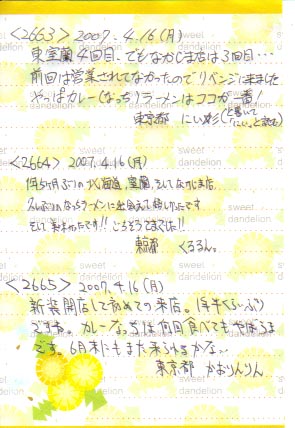 <2663> 2007.4.16(月)
東室蘭4回目、でもなかじま店は3回目…
前回は営業されてなかったのでリベンジに来ました
やっぱカレー(なっち)ラーメンはココが一番!
東京都 にい彡(と書いて「にい」と読む)
<2664> 2007.4.16(月)
何ヶ月ぶりの北海道、室蘭、そしてなかじま店。
久しぶりのなっちラーメンに出会えて嬉しかったです
そして美味かったです!! ごちそうさまでした!!
東京都 くろろん。
<2665> 2007.4.16(月)
新装開店して初めての来店。1年半くらいぶり
ですね。カレーなっちは何回食べてもやはりうま
です。6月末にもまた来られるかな…
東京都 かおりんりん
sweet dandelion
sweet dandelion
sweet dandelion
sweet dandelion
sweet dandelion
sweet dandelion